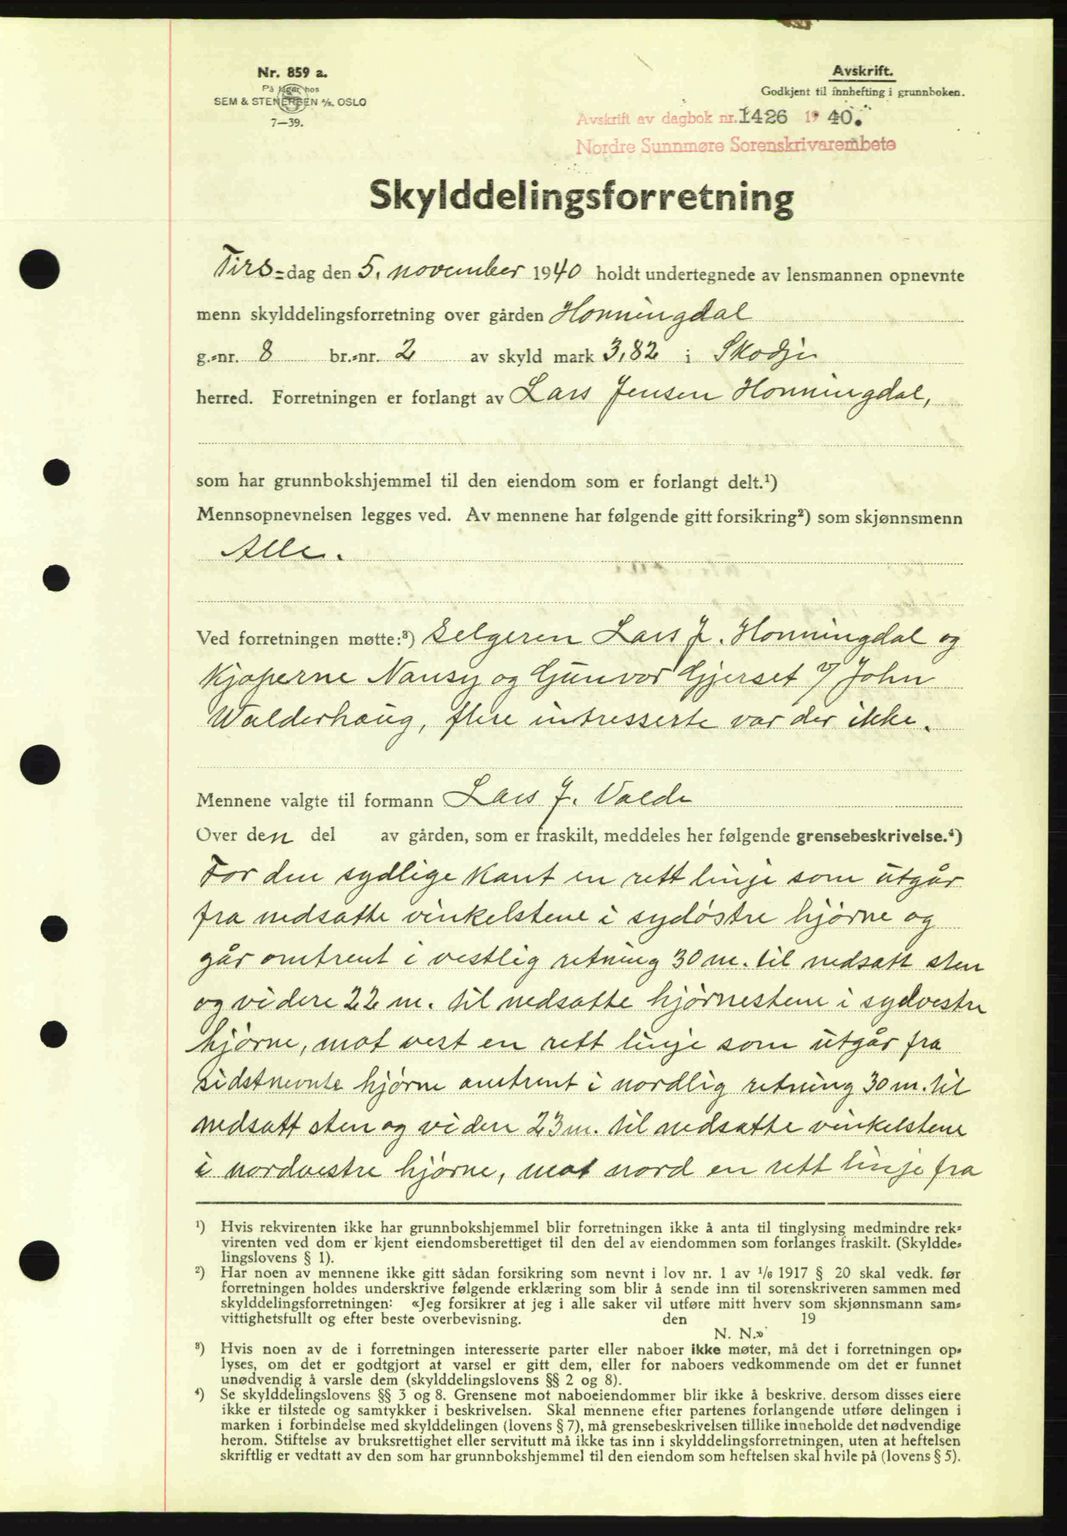 Nr. 859 a.
På lager hos
SEM & STENERSEN A/S, OSLO
7—39.
Avskrift.
Godkjent til innhefting i grunnboken.
Avskrift av dagbok nr. 1426 19 40.
Nordre Sunnmøre Sorenskrivarembete
Skylddelingsforretning
Tirs-dag den 5. november 1940 holdt undertegnede av lensmannen opnevnte
menn skylddelingsforretning over gården Honningdal
g.-nr. 8 br.-nr. 2 av skyld mark 3,82 i Skodje
herred. Forretningen er forlangt av Lars Jensen Honningdal,
som har grunnbokshjemmel til den eiendom som er forlangt delt.¹)
Mennsopnevnelsen legges ved. Av mennene har følgende gitt forsikring²) som skjønnsmenn
Alle.
Ved forretningen møtte:³) Selgeren Lars J. Honningdal og
kjøperne Nansy og Gunvor Gjerset v/ John
Walderhaug, flere intresserte var der ikke.
Mennene valgte til formann Lars J. Valde
Over den del av gården, som er fraskilt, meddeles her følgende grensebeskrivelse.⁴)
For den sydlige kant en rett linje som utgår
fra nedsatte vinkelstene i sydøstre hjørne og
går omtrent i vestlig retning 30 m. til nedsatt sten
og videre 22 m. til nedsatte hjørnestene i sydvestre
hjørne, mot vest en rett linje som utgår fra
sidstnevnte hjørne omtrent i nordlig retning 30 m. til
nedsatt sten og videre 23 m. til nedsatte vinkelstene
i nordvestre hjørne, mot nord en rett linje fra
¹) Hvis rekvirenten ikke har grunnbokshjemmel blir forretningen ikke å anta til tinglysing medmindre rek-
virenten ved dom er kjent eiendomsberettiget til den del av eiendommen som forlanges fraskilt. (Skyldde-
lingslovens § 1).
²) Har noen av mennene ikke gitt sådan forsikring som nevnt i lov nr. 1 av 1/6 1917 § 20 skal vedk. før
forretningen holdes underskrive følgende erklæring som blir å sende inn til sorenskriveren sammen med
skylddelingsforretningen: «Jeg forsikrer at jeg i alle saker vil utføre mitt hverv som skjønnsmann sam-
vittighetsfullt og efter beste overbevisning. den 19
N. N.»
³) Hvis noen av de i forretningen interesserte parter eller naboer ikke møter, må det i forretningen op-
lyses, om det er godtgjort at varsel er gitt dem, eller for naboers vedkommende om det er funnet
unødvendig å varsle dem (skylddelingslovens §§ 2 og 8).
⁴) Se skylddelingslovens §§ 3 og 8. Grensene mot naboeiendommer blir ikke å beskrive. dersom disses eiere
ikke er tilstede og samtykker i beskrivelsen. Skal mennene efter partenes forlangende utføre delingen i
marken i forbindelse med skylddelingen (lovens § 7), må grensebeskrivelsen tillike inneholde det nødvendige
herom. Stiftelse av bruksrettighet eller servitutt må ikke tas inn i skylddelingsforretningen, uten at heftelsen
skriftlig er vedtatt av den som har grunnbokshjemmel til den eiendom som heftelsen skal hvile på (lovens § 5).